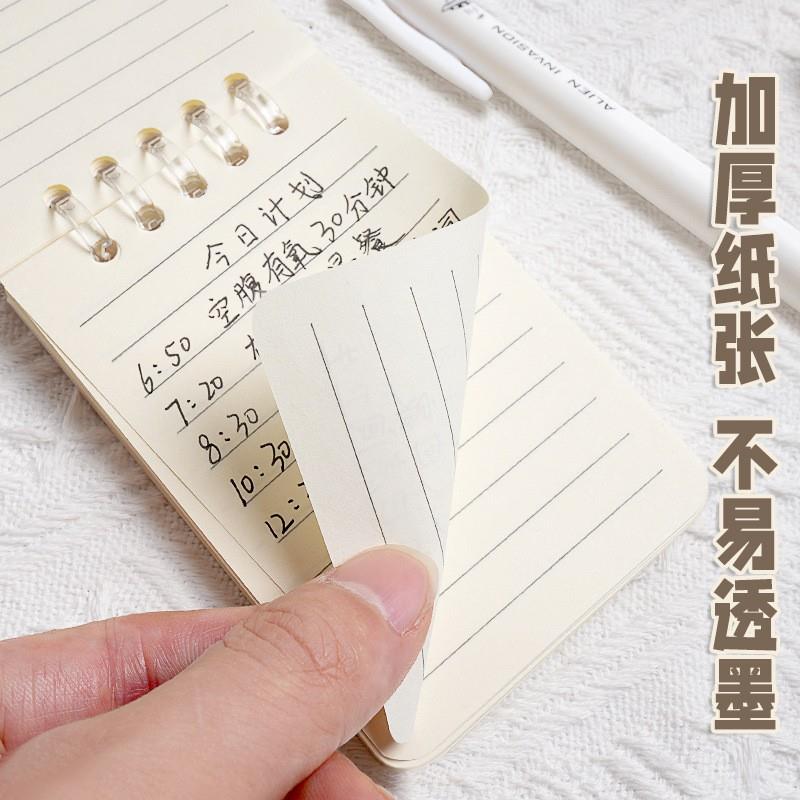 ALIEN INVASION
今日计划
6:50 空腹有氧30分钟
7:20
8:30
10:30
12:
加厚纸张 不易透墨